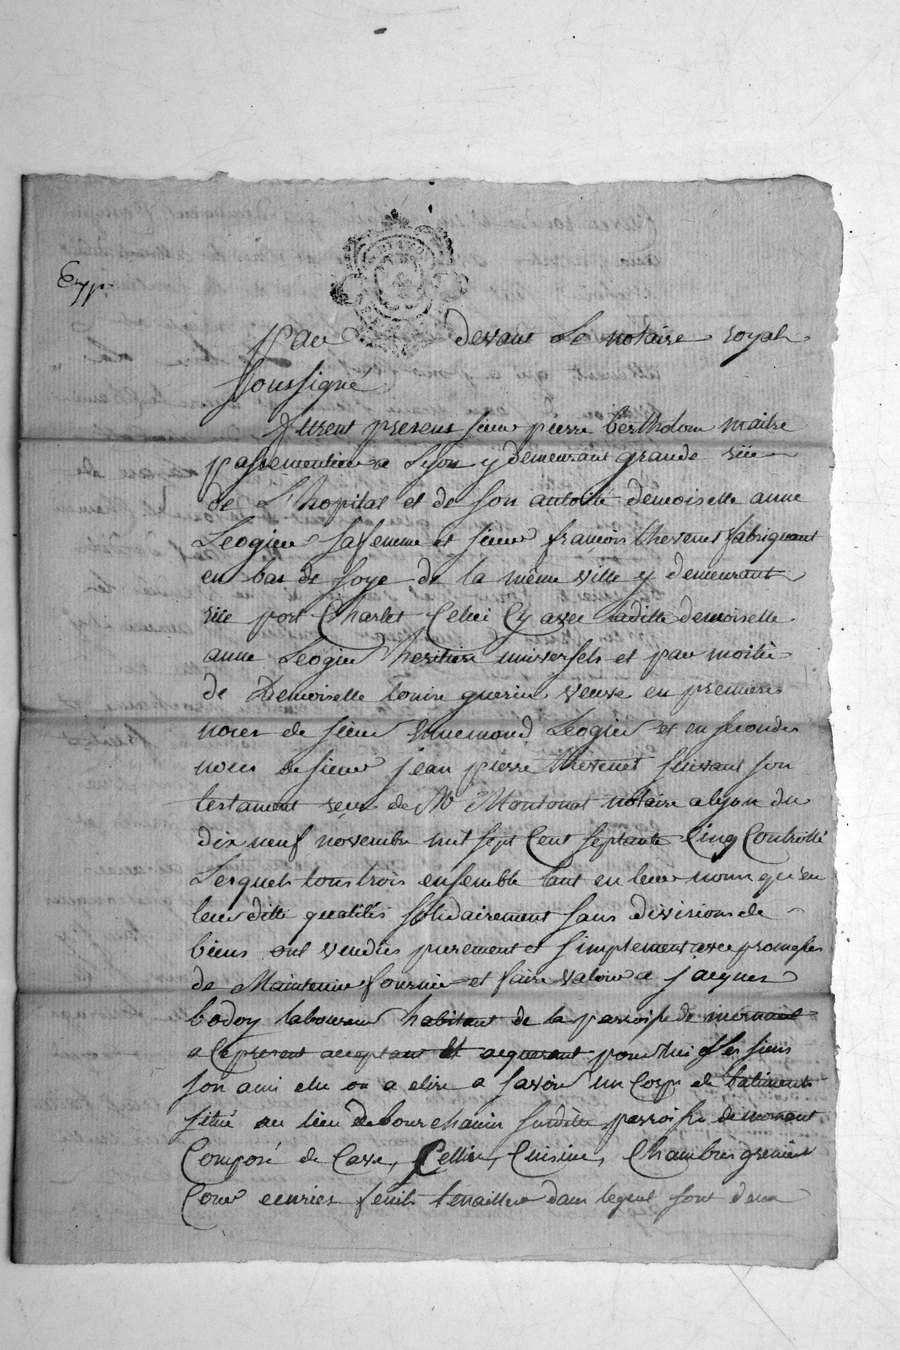 par devant le notaire royal
soussigné
furent presens sieur pierre bertholon maitre
passementier a Lyon y demeurant grande rüe
de L'hopital et de son autorité demoiselle anne
Leogier sa femme et sieur françois thevenet fabriquant
en bas de soye de la même ville y demeurant
rüe port Charlet Celui Cy avec laditte demoiselle
anne Leogier heritiers universels et par moitié
de Demoiselle louise guerin veuve en premieres
noces de sieur Ennemond Leogier et en secondes
noces de sieur jean pierre thevenet suivant son
testament reçu de Me Montonat notaire a lyon du
dix neuf novembre mil sept Cent septante Cinq Controllé
Lesquels tous trois ensemble tant en leur noms qu'en
leur ditte qualités solidairement sans division de
biens ont vendus purement et simplement avec promesses
de Maintenir fournir et faire valoir a jacques
bodoy laboureur habitant de la parroisse de mornant
a Ce present acceptant et acquerant pour lui et les siens
son ami elu ou a elire a savoir un Corps de batiments
situé au lieu de bourchanin susditte parroisse de mornant
Composé de Cave, Cellier, Cuisine, Chambres grenier
Cour ecuries fenils dans lequel sont deux